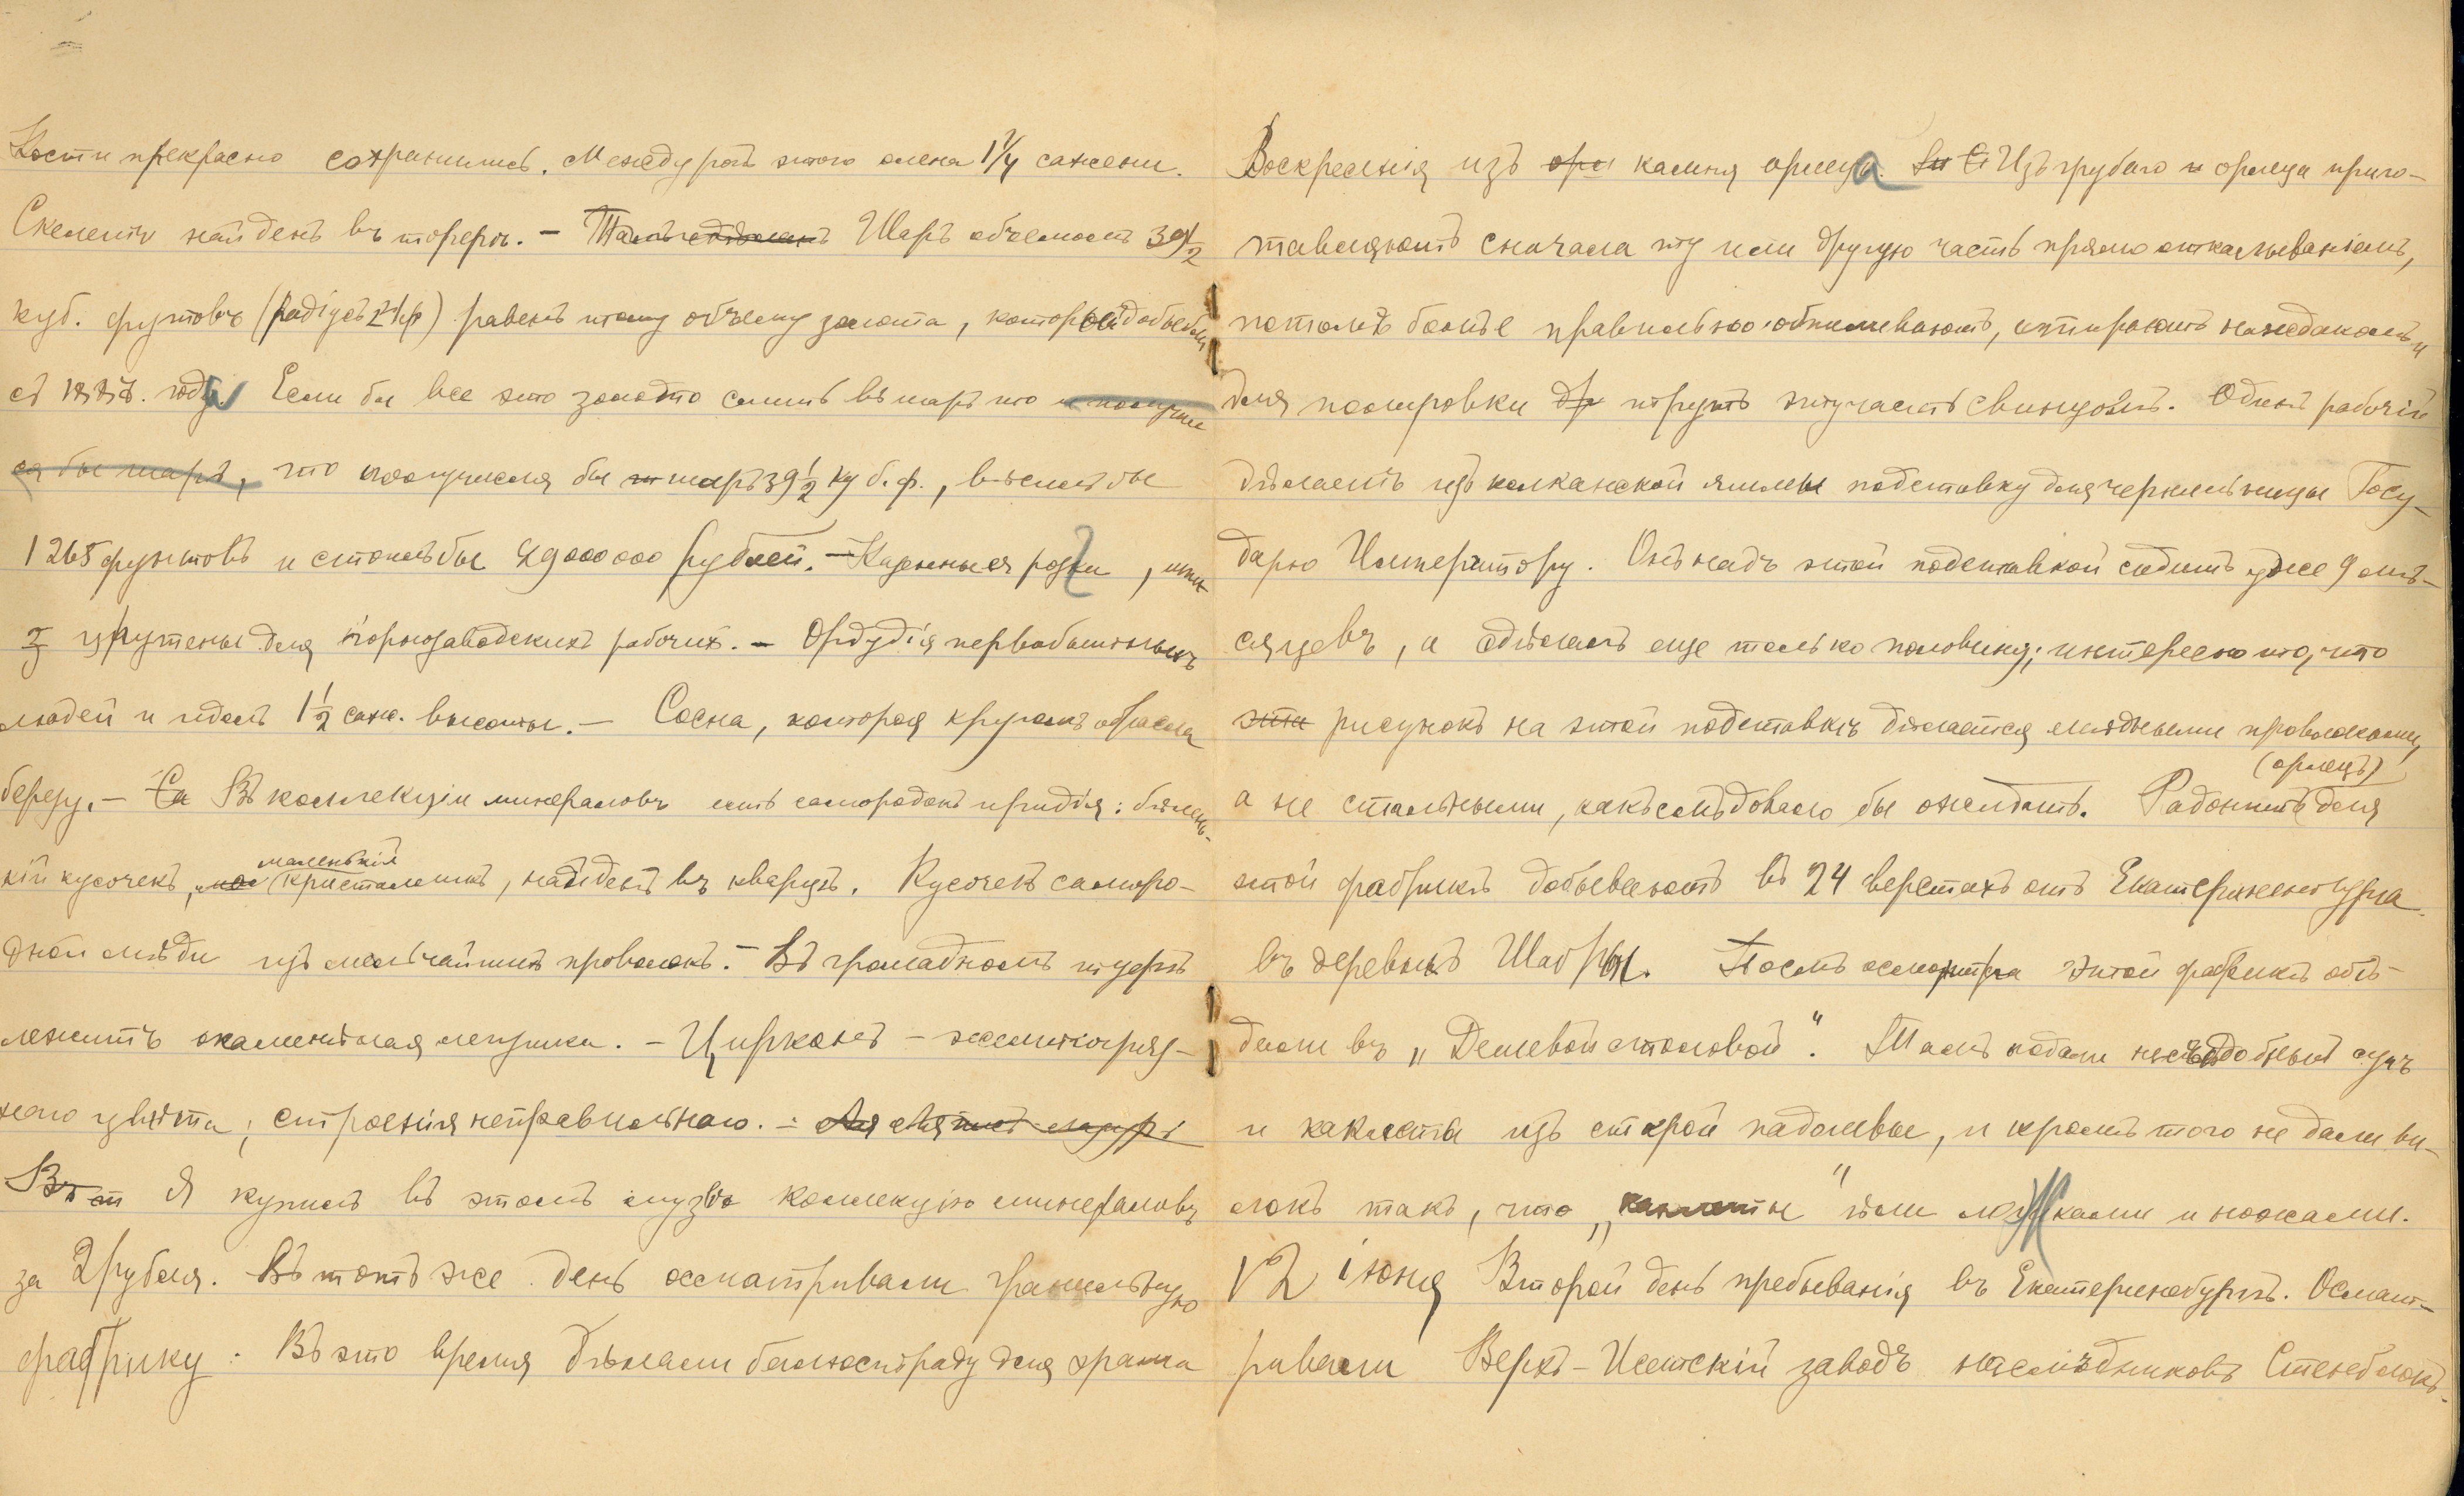 Кости прекрасно сохранились. Между рогъ этого оленя 1 1/4 сажени.
Скелетъ найденъ въ торфѣ. – Тамъ сдѣланъ Шаръ объемомъ 39 1/2
куб. футовъ (радіусъ ф) равенъ тому объему золота, который добыли
съ года. Если бы все это золото слить въ шаръ то и получил
ся бы шаръ, что получился бы ш шаръ 39 1/2 куб. ф., вѣсилъ бы
1265 фунтовъ и стоилъ бы 29000000 рублей. – Казенныя розги,
шпицрутены для горнозаводскихъ рабочихъ. – Орудія первобытныхъ
людей и идолъ 1 1/2 саж. высоты. – Сосна, которая кругомъ обросла
березу. – Са Въ коллекціи минераловъ есть самородокъ иридія: бѣлень-
кій кусочекъ, мал маленькій кристаликъ, найденъ въ кварцѣ. Кусочекъ саморо-
дной мѣди изъ мельчайшихъ проволокъ. – Въ громадномъ
лежитъ окаменѣлая лепешка. – Цирконъ – желтогряз-
наго цвѣта, строенія неправильнаго. –
Въ т Я купилъ въ этомъ музеѣ коллекцію минераловъ
за 2 рубля. Въ тотъ же день осматривали гранильную
фабрику. Въ это время дѣлали балюстраду для храма
Воскресенія изъ орл камня орлеца. Изъ грубаго и орлеца приго-
тавляютъ сначала ту или другую часть прямо откалываніемъ,
потомъ болѣе правильно обтачиваютъ, натираютъ наждакомъ и
для полировки др трутъ эту часть свинцомъ. Одинъ рабочій
дѣлаетъ изъ калканской яшмы подставку для чернильницы Госу-
дарю Императору. Онъ надъ этой подставкой сидитъ уже 9 мѣ-
сяцевъ, а сдѣлалъ еще только половину; интересно то, что
эти рисунокъ на этой подставкѣ дѣлается мѣдными проволоками,
а не стальными, какъ слѣдовало бы ожидать. Радонитъ (орлецъ) для
этой фабрики добываютъ въ 24 верстахъ отъ Екатеринентурга
въ деревнѣ Шабры. Послѣ осмотра этой фабрики обѣ-
дали въ „Дешевой столовой". Тамъ подали несъѣдобный супъ
и каклеты изъ старой подошвы, и кромѣ того не дали ви-
локъ такъ, что „каклеты" ѣли ложками и ножами.
12 іюня Второй день пребыванія въ Екатеринебургѣ. Осмат-
ривали Верхъ-Исетскій заводъ наслѣдниковъ Стенбокъ-